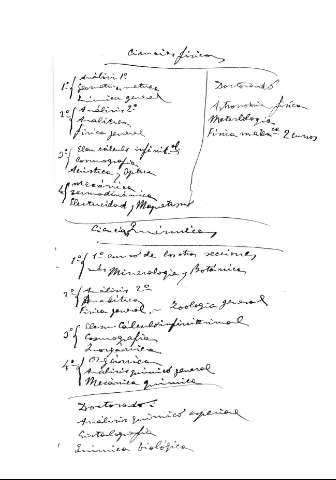 Ciencias físicas
1º Análisis 1º
Geometría métrica
Química general
2º Análisis 2º
Analítica
Física general
3º Elem cálculo infinit.al
Cosmografía
Acústica y Optica
4º Mecánica
Termodinámica
Electricidad y Magnetismo
Doctorado
Astronomía física
Meteorología
Física matca 2 cursos
Ciencias Químicas
1º 1er curso de las otras secciones
más Mineralogía y Botánica
2º Análisis 2º
Analítica
Física general, - Zoología general
3º Elem. Cálculo infinitesimal
Cosmografía
Inorgánica
4º Orgánica
Análisis químico general
Mecánica química
Doctorado:
Análisis químico especial
Cristalografía
Química biológica